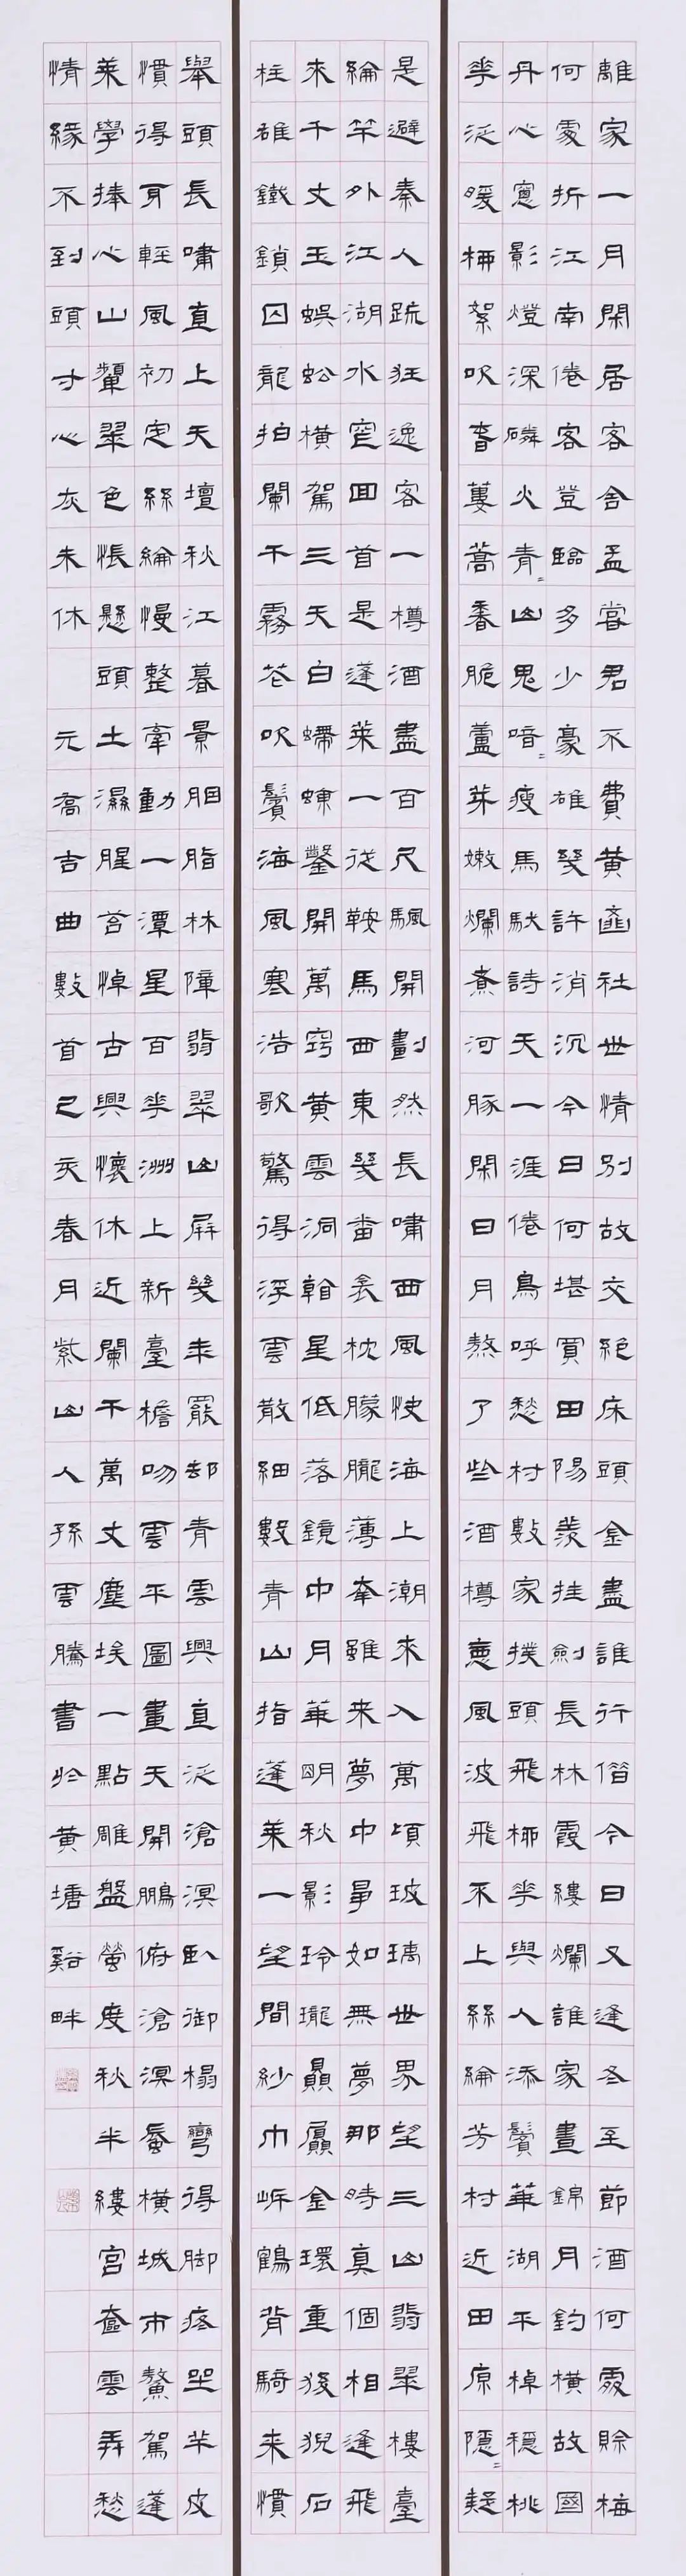 離家一月閑居客舍孟嘗君不費黃齏社世情別故交絕床頭金盡誰行借今日又逢冬至節酒何處賒梅
花何處折江南倦客登臨多少豪雄幾許消沉今日何堪買田陽羨挂劍長林霞縷爛誰家晝錦月鉤橫故國
丹心窻影燈深磷火青=山鬼喑=瘦馬馱詩天一涯倦鳥呼愁村數家撲頭飛柳花與人添鬢華湖平棹穩桃
花泛暖柳絮吹春蔞蒿香脆蘆芽嫩爛煮河豚閑日月熬了些酒樽意風波飛不上絲綸芳村近田原隱=疑
是避秦人疏狂逸客一樽酒盡百尺颿開劃然長嘯西風快海上潮來入萬頃玻璃世界望三山翡翠樓臺
綸竿外江湖水窄回首是蓬萊一從鞍馬西東幾番衾枕朦朧薄幸雖來夢中爭如無夢那時真個相逢飛
來千丈玉蜈蚣橫駕三天白螮蝀鑿開萬竅黃雲洞翰星低落鏡中月華明秋影玲瓏贔屭金環重狻猊石
柱雄鐵鎖囚龍拍闌干霧花吹鬢海風寒浩歌驚得浮雲散細數青山指蓬萊一望間紗巾岸鶴背騎來慣
舉頭長嘯直上天壇秋江暮景胭脂林障翡翠山屏幾年罷卻青雲興直泛滄溟臥御榻彎得腳疼坐羊皮
慣得身輕風初定絲綸慢整牽動一潭星百花洲上新臺檐吻雲平圖畫天開鵬俯滄溟蜃橫城市鰲駕蓬
萊學捧心山顰翠色悵懸頭土濕腥苔悼古興懷休近闌干萬丈塵埃一點雕盤螢度秋半縷宮奩雲弄愁
情緣不到頭寸心灰未休 元喬吉曲數首己亥春月紫山人孫雲騰書於黃塘谿畔